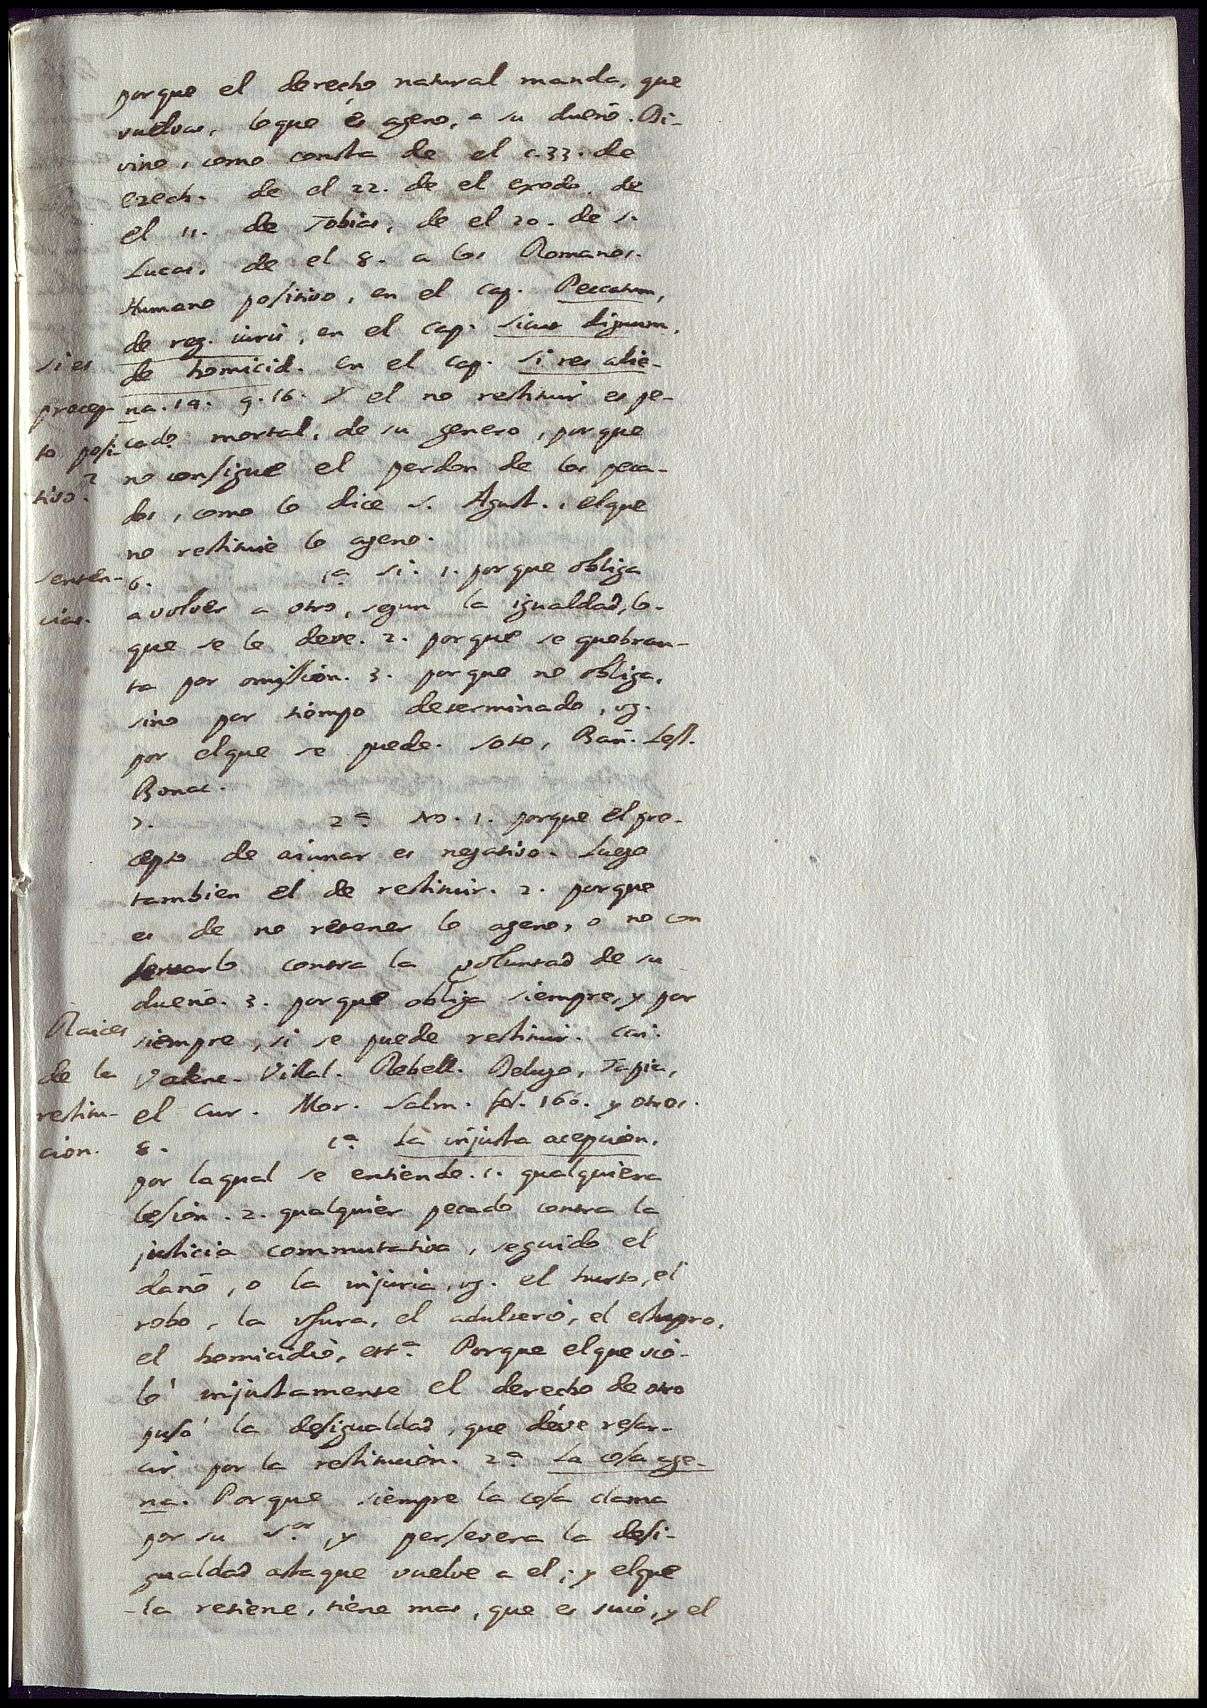 porque el derecho natural manda, que
vuelvas, loque és ageno, a su dueño. Di-
vino, como consta de el c.33. de
ezech. de el 22. de el exodo. de
el 11. de Tobias, de el 20. de S.
Lucas, de el 8. a los Romanos.
Humano positivo, en el cap. Peccatum,
de reg. iuris, en el cap. sicut dignum,
de homicid. en el cap. si res alie-
na. 14. q. 16. y el no restituir es pe-
cado mortal, de su genero, porque
no consigue el perdon de los peca-
dos, como lo dice S. Agust., elque
no restituie lo ageno.
si es
precep-
to posi-
tivo?
senten-
cias.
6. 1ª si. 1. porque obliga
a volver a otro, segun la igualdad, lo-
que se le deve. 2. porque se quebran-
ta por omission. 3. porque no obliga,
sino por tiempo determinado, vg.
por elque se puede. Soto, Bañ. Less.
Bonac.
7. 2ª No. 1. porque el pre-
cepto de  es negativo. Luego
tambien el de restituir. 2. porque
es de no retener lo ageno, o no con
servarlo contra la voluntad de su
dueño. 3. porque obliga siempre, y por
siempre, si se puede restituir. Cai.
 Villal. Rebell. Delugo, Tapia,
el Cur. Mor. Salm. fol. 166. y otros.
Raices
de la
restitu-
cion.
8. 1ª La injusta acepcion,
por laqual se entiende. 1. qualquiera
lesion. 2. qualquier pecado contra la
justicia commutativa, seguido el
daño, o la injuria, vg. el hurto, el
robo, la usura, el adulterio, el estupro,
el homicidio, ettª. Porque elque vio-
ló injustamente el derecho de otro
pusó la desigualdad, que déve resar-
cir por la restitucion. 2ª La cosa age-
na. Porque siempre la cosa clama
por su Sor, y persevera la desi-
gualdad astaque vuelve a el; y elque
la retiene, tiene mas, que es suio, y el